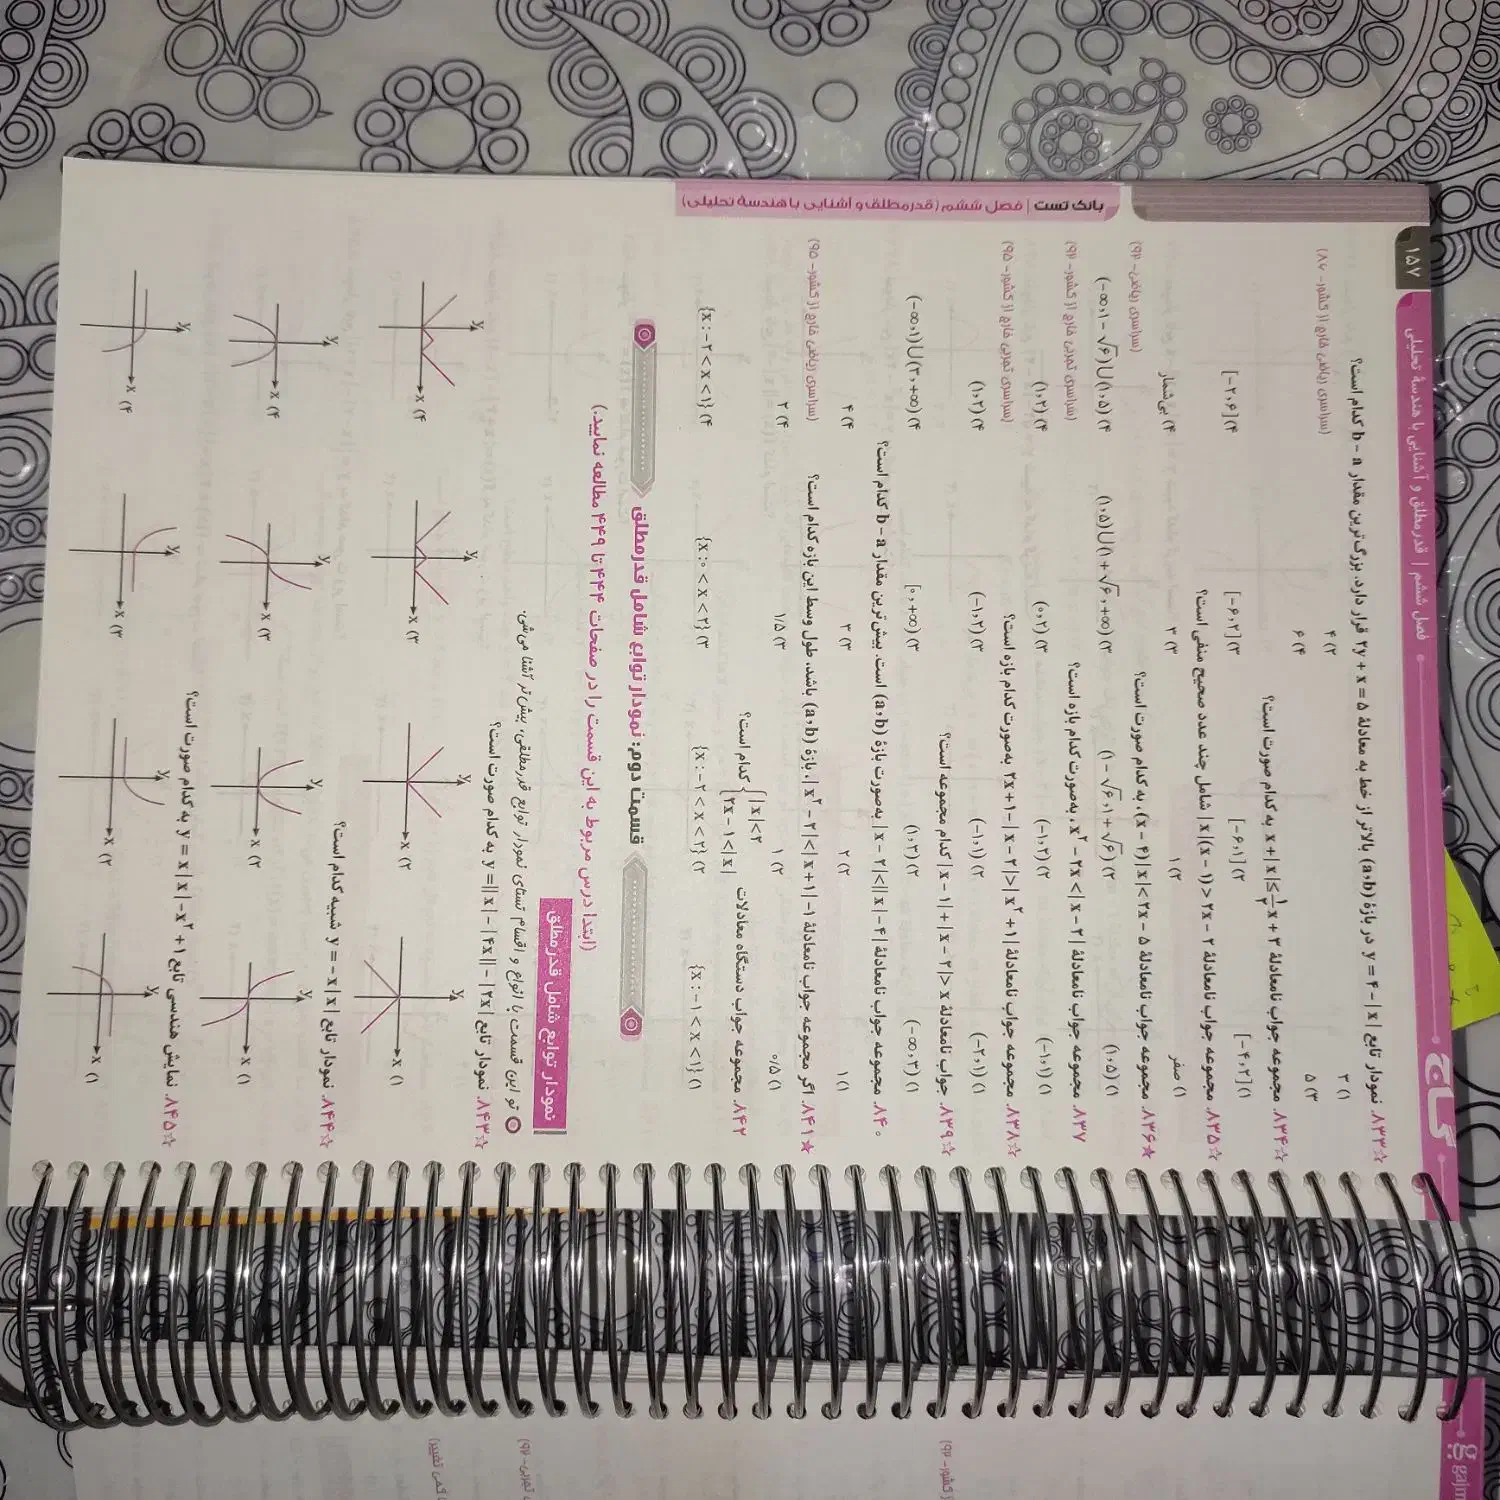 بانک تست | فصل ششم (قدرمطلق و آشنایی با هندسهٔ تحلیلی)
۱۵۷
فصل ششم | قدرمطلق و آشنایی با هندسهٔ تحلیلی
گاج
☆۸۳۳. نمودار تابع y = ۴ - | x | در بازهٔ (a , b) بالاتر از خط به معادلهٔ ۲y + x = ۵ قرار دارد. بزرگ‌ترین مقدار b - a کدام است؟
(سراسری ریاضی خارج از کشور - ۸۶)
۱) ۳ ۲) ۴
۳) ۵ ۴) ۶
☆۸۳۴. مجموعه جواب نامعادلهٔ x + | x | ≤ ۱/۲ x + ۳ به کدام صورت است؟
۱) [-۴ , ۲] ۲) [-۶ , ۱] ۳) [-۶ , ۲] ۴) [-۲ , ۶]
☆۸۳۵. مجموعه جواب نامعادلهٔ | x | (x - ۱) > ۲x - ۲ شامل چند عدد صحیح منفی است؟
۱) صفر ۲) ۱ ۳) ۳ ۴) بی‌شمار
★۸۳۶. مجموعه جواب نامعادلهٔ (x - ۴) | x | < ۲x - ۵، به کدام صورت است؟ (سراسری ریاضی - ۹۴)
۱) (۱ , ۵) ۲) (۱ - √۶ , ۱ + √۶) ۳) (۱ , ۵) ∪ (۱ + √۶ , +∞) ۴) (-∞ , ۱ - √۶) ∪ (۱ , ۵)
۸۳۷. مجموعه جواب نامعادلهٔ x² - ۲x < | x - ۲ |، به‌صورت کدام بازه است؟ (سراسری تجربی خارج از کشور - ۹۴)
۱) (-۱ , ۱) ۲) (-۱ , ۲) ۳) (۰ , ۲) ۴) (۱ , ۲)
☆۸۳۸. مجموعه جواب نامعادلهٔ ۲x + ۱ - | x - ۲ | > | x² + ۱ | به‌صورت کدام بازه است؟ (سراسری تجربی خارج از کشور - ۹۵)
۱) (-۲ , ۱) ۲) (-۱ , ۱) ۳) (-۱ , ۲) ۴) (۱ , ۲)
☆۸۳۹. جواب نامعادلهٔ | x - ۱ | + | x - ۲ | > x کدام مجموعه است؟
۱) (-∞ , ۳) ۲) (۱ , ۳) ۳) [۰ , +∞) ۴) (-∞ , ۱) ∪ (۳ , +∞)
۸۴۰. مجموعه جواب نامعادلهٔ | x - ۲ | < || x | - ۴ | به‌صورت بازهٔ (a , b) است. بیش‌ترین مقدار b - a کدام است؟
۱) ۱ ۲) ۲ ۳) ۳ ۴) ۴
★۸۴۱. اگر مجموعه جواب نامعادلهٔ | x² - ۲ | < | x + ۱ | - ۱، بازهٔ (a , b) باشد، طول وسط این بازه کدام است؟ (سراسری ریاضی خارج از کشور - ۹۵)
۱) ۰/۵ ۲) ۱ ۳) ۱/۵ ۴) ۲
۸۴۲. مجموعه جواب دستگاه معادلات { | x | < ۲ , ۲x - ۱ < | x | کدام است؟
۱) {x : -۱ < x < ۱} ۲) {x : -۲ < x < ۲} ۳) {x : ۰ < x < ۲} ۴) {x : -۲ < x < ۱}
قسمت دوم: نمودار توابع شامل قدرمطلق
(ابتدا درس مربوط به این قسمت را در صفحات ۴۴۴ تا ۴۴۹ مطالعه نمایید.)
نمودار توابع شامل قدرمطلق
تو این قسمت با انواع و اقسام تستای نمودار توابع قدرمطلقی، بیش‌تر آشنا می‌شی.
☆۸۴۳. نمودار تابع y = || x | - | ۴x || - | ۲x | به کدام صورت است؟
۱) x y ۲) x y ۳) x y ۴) x y
☆۸۴۴. نمودار تابع y = -x | x | شبیه کدام است؟
۱) x y ۲) x y ۳) x y ۴) x y
☆۸۴۵. نمایش هندسی تابع y = x | x | - x² + ۱ به کدام صورت است؟
۱) x y ۲) x y ۳) x y ۴) x y